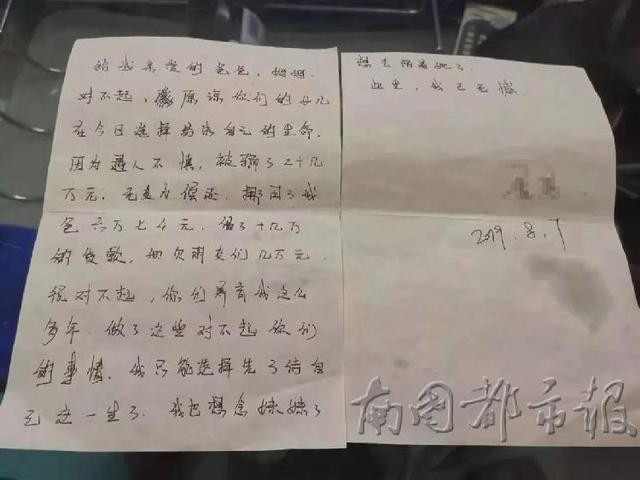 给我亲爱的爸爸,妈妈.
对不起,原谅你们的女儿
在今日选择结束自己的生命.
因为遇人不慎,被骗了二十几
万元.无力偿还.挪用了我
爸六万七千元.借了十几万
的贷款,拖欠朋友们几万元.
很对不起,你们养育我这么
多年.做了这些对不起你们
的事情.我只能选择先了结自
己这一生了.我也想念妹妹了
想去陪着她了.
此生,我已无憾.
2019.8.7
南国都市报